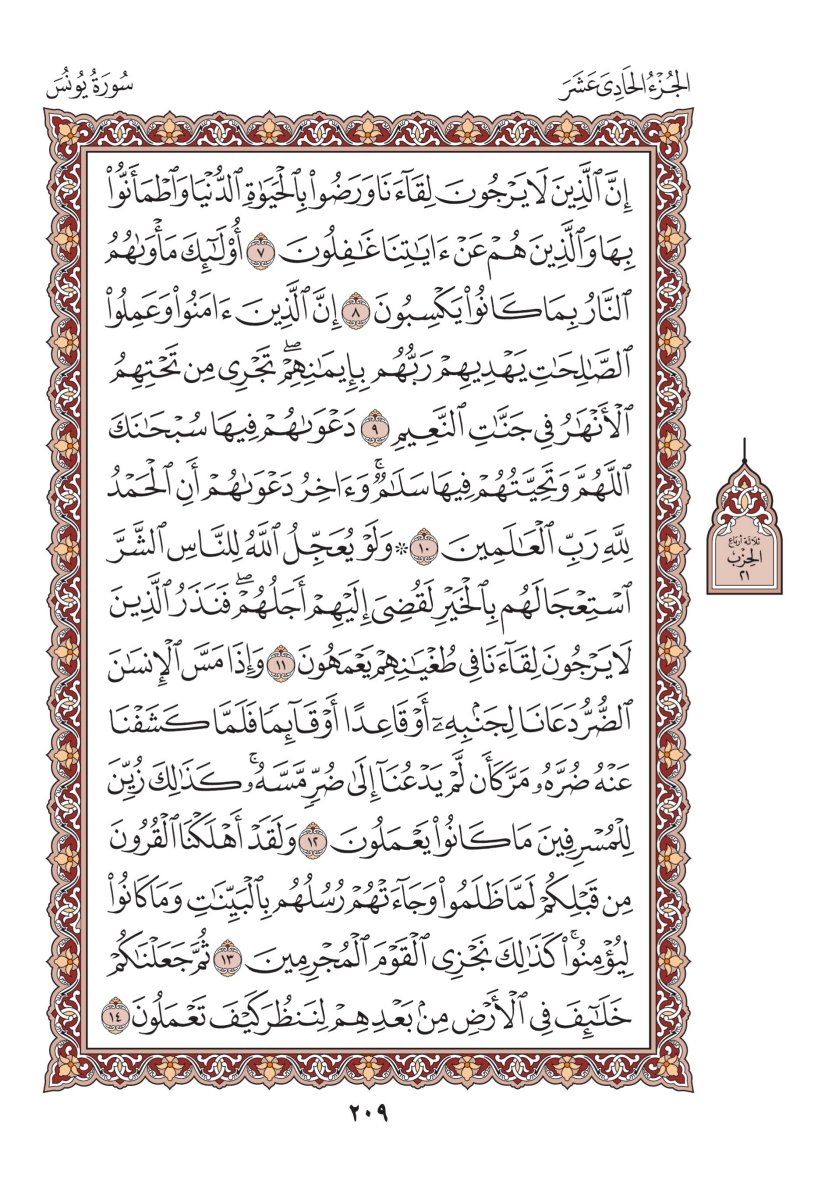 الجُزْءُ الحَادِي عَشَرَ
سُورَةُ يُونُسَ
إِنَّ ٱلَّذِينَ لَا يَرْجُونَ لِقَآءَنَا وَرَضُوا۟ بِٱلْحَيَوٰةِ ٱلدُّنْيَا وَٱطْمَأَنُّوا۟
بِهَا وَٱلَّذِينَ هُمْ عَنْ ءَايَٰتِنَا غَٰفِلُونَ ٧ أُو۟لَٰٓئِكَ مَأْوَىٰهُمُ
ٱلنَّارُ بِمَا كَانُوا۟ يَكْسِبُونَ ٨ إِنَّ ٱلَّذِينَ ءَامَنُوا۟ وَعَمِلُوا۟
ٱلصَّٰلِحَٰتِ يَهْدِيهِمْ رَبُّهُم بِإِيمَٰنِهِمْۖ تَجْرِى مِن تَحْتِهِمُ
ٱلْأَنْهَٰرُ فِى جَنَّٰتِ ٱلنَّعِيمِ ٩ دَعْوَىٰهُمْ فِيهَا سُبْحَٰنَكَ
ٱللَّهُمَّ وَتَحِيَّتُهُمْ فِيهَا سَلَٰمٌۚ وَءَاخِرُ دَعْوَىٰهُمْ أَنِ ٱلْحَمْدُ
لِلَّهِ رَبِّ ٱلْعَٰلَمِينَ ١٠ ۞ وَلَوْ يُعَجِّلُ ٱللَّهُ لِلنَّاسِ ٱلشَّرَّ
ٱسْتِعْجَالَهُم بِٱلْخَيْرِ لَقُضِىَ إِلَيْهِمْ أَجَلُهُمْۖ فَنَذَرُ ٱلَّذِينَ
لَا يَرْجُونَ لِقَآءَنَا فِى طُغْيَٰنِهِمْ يَعْمَهُونَ ١١ وَإِذَا مَسَّ ٱلْإِنسَٰنَ
ٱلضُّرُّ دَعَانَا لِجَنۢبِهِۦٓ أَوْ قَاعِدًا أَوْ قَآئِمًا فَلَمَّا كَشَفْنَا
عَنْهُ ضُرَّهُۥ مَرَّ كَأَن لَّمْ يَدْعُنَآ إِلَىٰ ضُرٍّ مَّسَّهُۥۚ كَذَٰلِكَ زُيِّنَ
لِلْمُسْرِفِينَ مَا كَانُوا۟ يَعْمَلُونَ ١٢ وَلَقَدْ أَهْلَكْنَا ٱلْقُرُونَ
مِن قَبْلِكُمْ لَمَّا ظَلَمُوا۟ وَجَآءَتْهُمْ رُسُلُهُم بِٱلْبَيِّنَٰتِ وَمَا كَانُوا۟
لِيُؤْمِنُوا۟ۚ كَذَٰلِكَ نَجْزِى ٱلْقَوْمَ ٱلْمُجْرِمِينَ ١٣ ثُمَّ جَعَلْنَٰكُمْ
خَلَٰٓئِفَ فِى ٱلْأَرْضِ مِنۢ بَعْدِهِمْ لِنَنظُرَ كَيْفَ تَعْمَلُونَ ١٤
ثلاثة أرباع
الحِزْبُ
٢١
٢٠٩